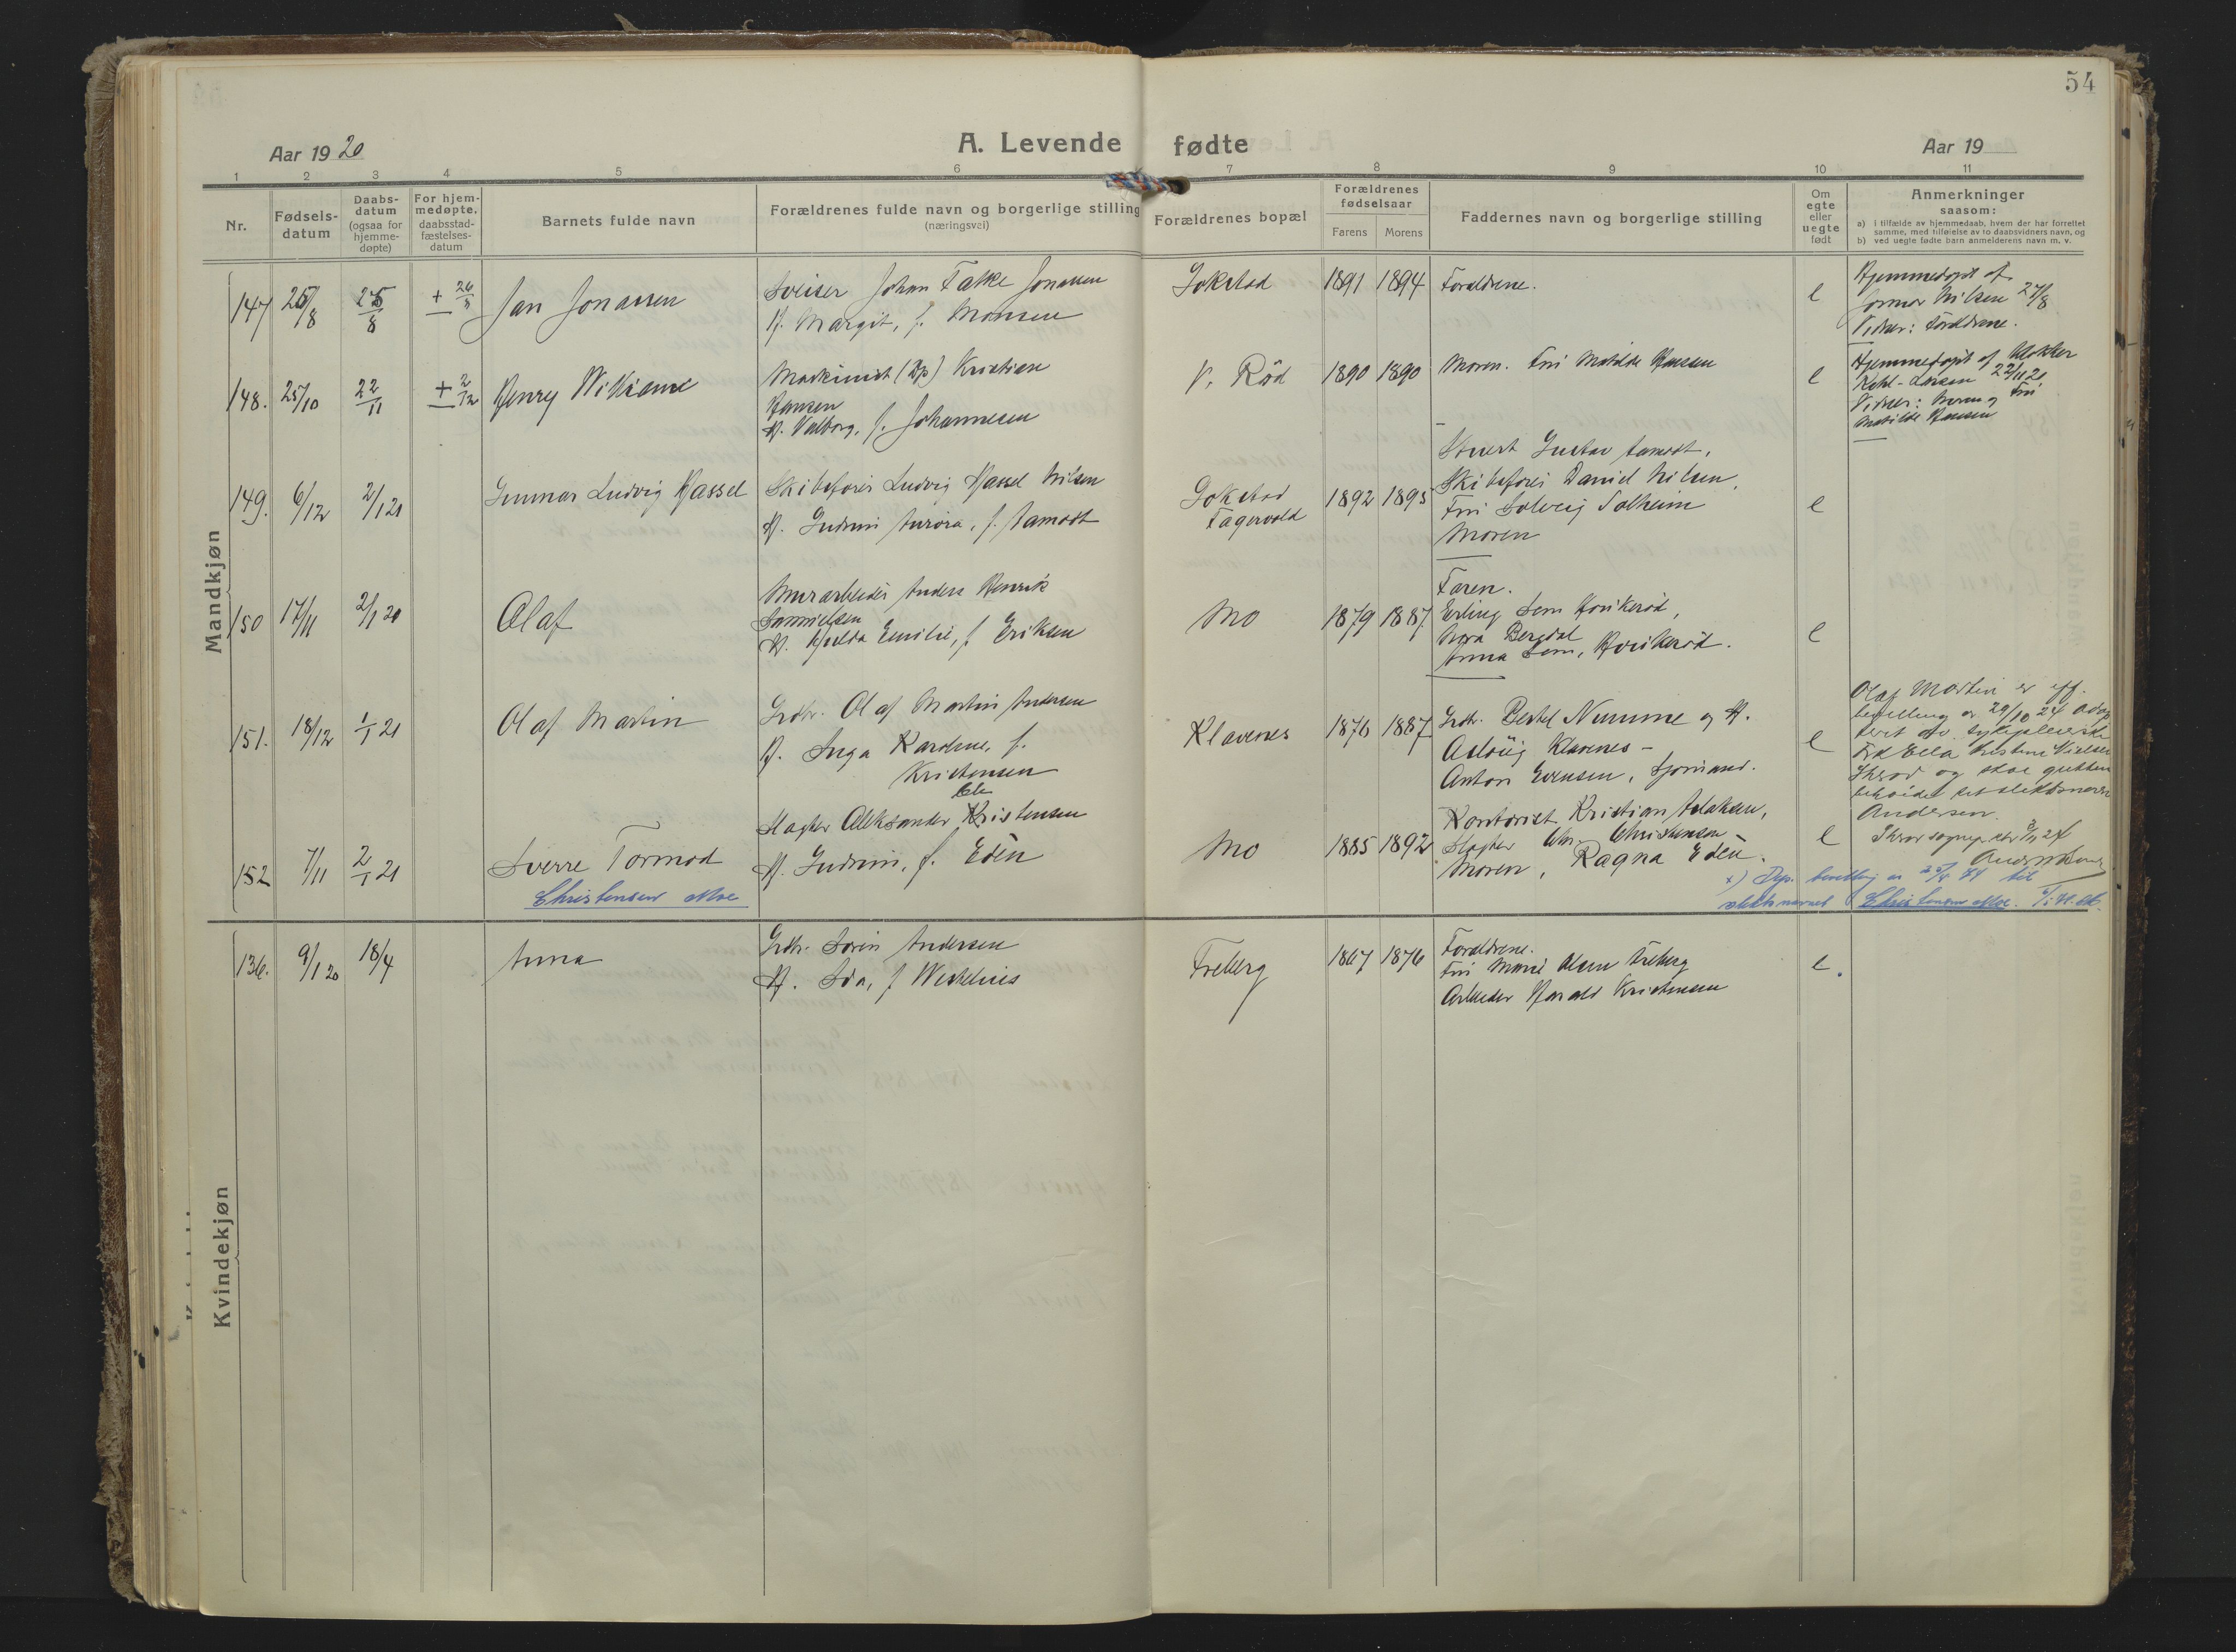 54
Aar 19 20
A. Levende fødte
Aar 19
1 2 3 4 5 6 7 8 9 10 11
Nr.
Fødsels-
datum
Daabs-
datum
(ogsaa for
hjemme-
døpte)
For hjem-
medøpte.
daabsstad-
fæstelses-
datum
Barnets fulde navn
Forældrenes fulde navn og borgerlige stilling
(næringsvei)
Forældrenes bopæl
Forældrenes
fødselsaar
Farens Morens
Faddernes navn og borgerlige stilling
Om
egte
eller
uegte
født
Anmerkninger
saasom:
a) i tilfælde av hjemmedaab, hvem der har forrettet
samme, med tilføielse av to daabsvidners navn, og
b) ved uegte fødte barn anmelderens navn m. v.
Mandkjøn
147 25/8 25/8 + 26/8 Jan Jonassen
Sveiser Johan Falke Jonassen
H. Margit, f. Monsen
Gokstad 1891 1894 Forældrene. e
Hjemmedøpt af
Jormor Nilsen 25/8
Vidner: Forældrene.
148. 25/10 22/11 + 2/12 Henry Williame
Maskinist (Dp) Kristian
Hansen
H. Valborg, f. Johannesen
V. Rød 1890 1890 Moren. Fru Matilde Hansen e
Hjemmedøpt af Klokker
Kohl-Larsen 22/11 21
Vidner: Moren og Fru
Matilde Hansen
149. 6/12 2/1 21 Gunnar Ludvig Hassel
Skibsfører Ludvig Hassel Nilsen
H. Gudrun Aurora, f. Aamodt
Gokstad
Fagervold
1892 1895
Stuert Gustav Aamodt,
Skibsfører Daniel Nilsen,
Fru Solveig Solheim
Moren
e
150 17/11 2/1 20 Olaf
Murarbeider Anders Henrik
Samuelsen
H. Hjalda Emilie, f Eriksen
Mo 1879 1887
Faren.
Erling Sem Horikerød,
Nora Bergdal
Anna Sem, Horikerød.
e
151. 18/12 1/1 21 Olaf Martin
Grdbr. Olaf Martin Andersen
H. Inga Karoline, f.
Kristensen
Klavenes 1876 1887
Grdbr. Bertel Numme og H.
Aslaug Klavenes -
Anton Evensen, Sjømand.
e
Olaf Martin er efter
bevilling av 29/10 24 adop
teret av sykepleierske
Frk Ella Kristine Nielsen
Skrav og skal gutten
beholde sit slektsnavn
Andersen.
152 7/11 2/1 21 Sverre Tormod
Christensen Moe
Slagter Aleksander Kristensen
Ch
H. Gudrun, f. Edèn
Mo 1885 1892
Kontorist Kristian Aslaksen,
Slagter Chr. Christensen
Moren, Ragna Edèn.
e
x) Dep. bevilling av 25/4 41 til
slektsnavnet Christensen Moe.
Kvindekjøn
136. 9/1 20 18/4 Anna
Grdbr. Søren Andersen
H. Ida, f Westelius
Freberg 1867 1876
Forældrene.
Fru Marie Olsen Freberg
Arbeider Harald Kristensen
e.